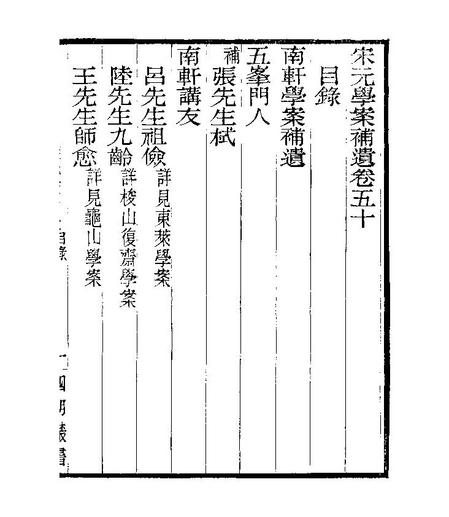 宋元學案補遺卷五十
目錄
南軒學案補遺
五峯門人
補張先生栻
南軒講友
呂先生祖儉詳見東萊學案
陸先生九齡詳梭山復齋學案
王先生師愈詳見龜山學案
四明叢書